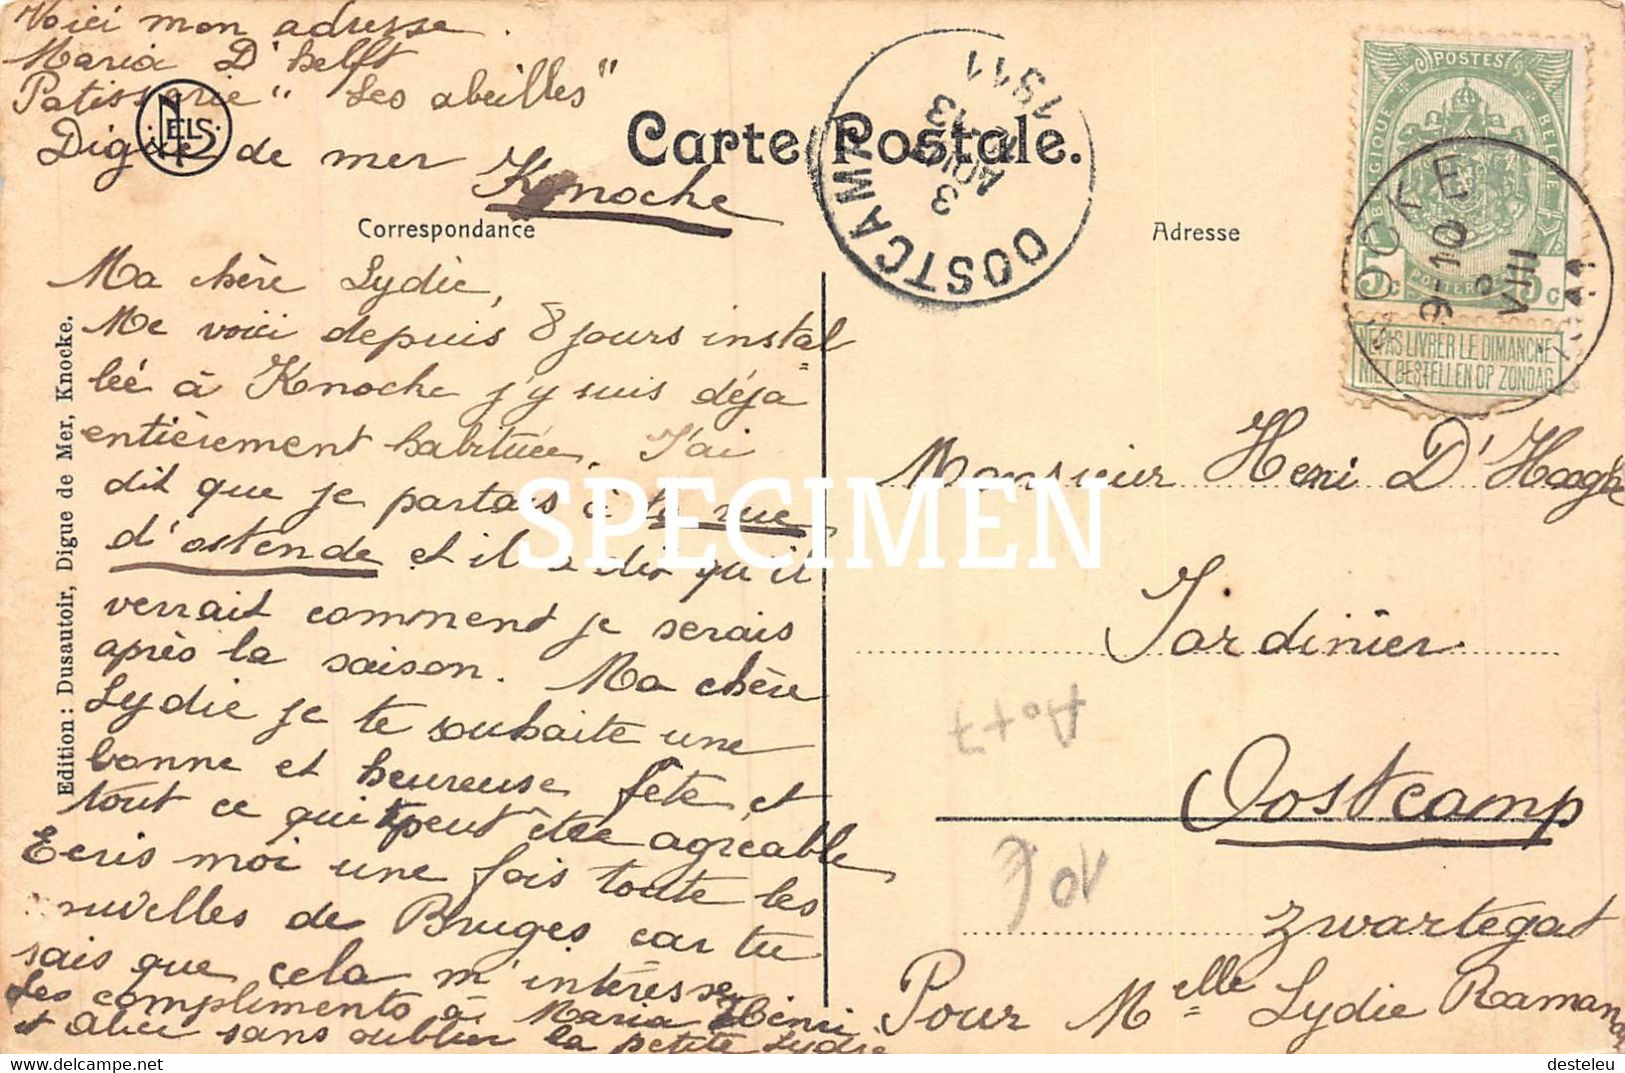 Voici mon adresse.
Maria D'helft
Patisserie "Les abeilles"
Digue de mer Knoche
NELS
Carte Postale.
OOSTCAMP
3
AOUT
13
1911
Correspondance
Adresse
POSTES
BELGIQUE BELGIE
5c 5c
POSTERIJEN
NE PAS LIVRER LE DIMANCHE
NIET BESTELLEN OP ZONDAG
9-10
VIII
Ma chère Lydie,
Me voici depuis 8 jours instal=
leé à Knoche j'y suis déja
entièrement habituée. J'ai
dit que je partais à la rue
d'ostende et il a dit qu'il
verrait comment je serais
après la saison. Ma chère
Lydie je te souhaite une
bonne et heureuse fête et
tout ce qui peut être agréable
Ecris moi une fois toute les
nuvelles de Bruges car tu
sais que cela m'intéresse
Les compliments à Maria Henri
et Alice sans oublier la petite Lydie
Edition : Dusautoir, Digue de Mer, Knocke.
SPECIMEN
Monsieur Henri D'Hooghe
Jardinier
Oostcamp
Zwartegat
Pour Melle Lydie Raman
A0+7
10€
desteleu